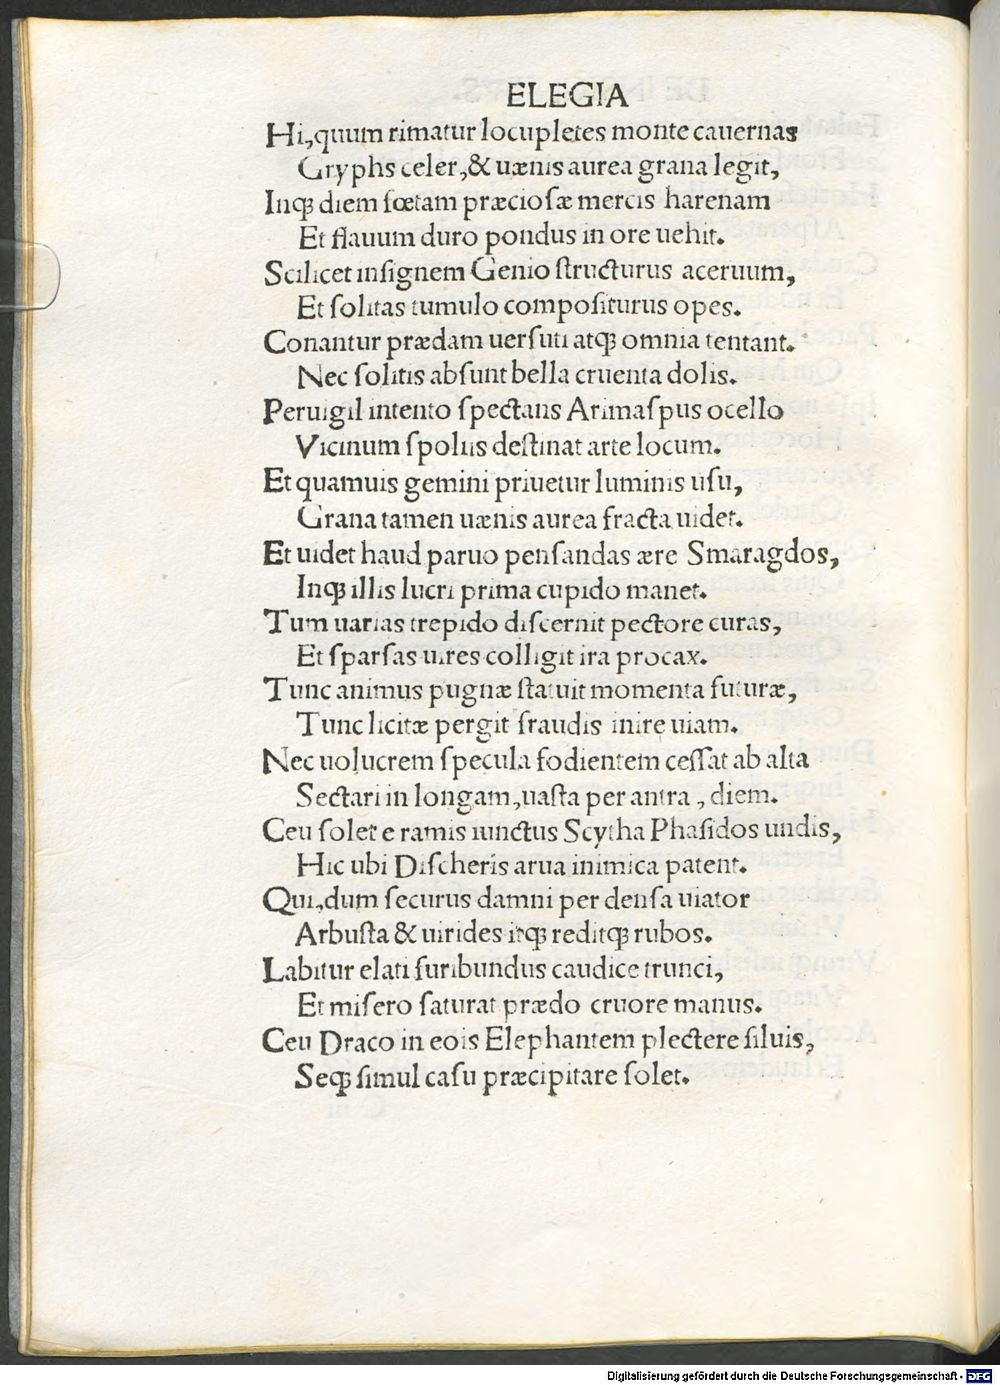 ELEGIA
Hi,quum rimatur locupletes monte cauernas
Gryphs celer,& uænis aurea grana legit,
Inqꝫ diem fœtam præcioſæ mercis harenam
Et flauum duro pondus in ore uehit.
Scilicet inſignem Genio ſtructurus aceruum,
Et ſolitas tumulo compoſiturus opes.
Conantur prædam uerſuti atqꝫ omnia tentant.
Nec ſolitis abſunt bella cruenta dolis.
Peruigil intento ſpectans Arimaſpus ocello
Vicinum ſpoliis deſtinat arte locum.
Et quamuis gemini priuetur luminis uſu,
Grana tamen uænis aurea fracta uidet.
Et uidet haud paruo penſandas ære Smaragdos,
Inqꝫ illis lucri prima cupido manet.
Tum uarias trepido diſcernit pectore curas,
Et ſparſas uires colligit ira procax.
Tunc animus pugnæ ſtatuit momenta futuræ,
Tunc licitæ pergit fraudis inire uiam.
Nec uolucrem ſpecula fodientem ceſſat ab alta
Sectari in longam,uaſta per antra , diem.
Ceu ſolet e ramis iunctus Scytha Phaſidos undis,
Hic ubi Diſcheris arua inimica patent.
Qui,dum ſecurus damni per denſa uiator
Arbuſta & uirides itqꝫ reditqꝫ rubos.
Labitur elati furibundus caudice trunci,
Et miſero ſaturat prædo cruore manus.
Ceu Draco in eois Elephantem plectere ſiluis,
Seqꝫ ſimul caſu præcipitare ſolet.
Digitalisierung gefördert durch die Deutsche Forschungsgemeinschaft - DFG